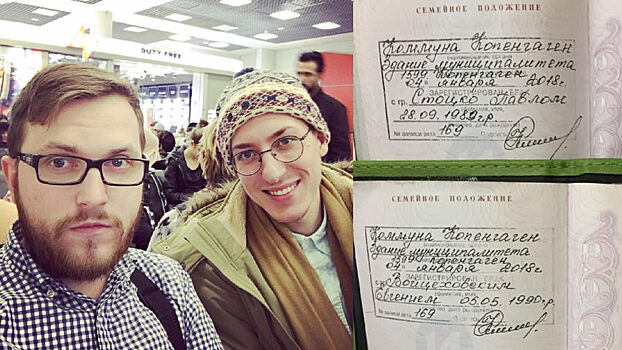 DUTY FREE
СЕМЕЙНОЕ ПОЛОЖЕНИЕ
Коммуна Копенгаген
Здание муниципалитета
1599 Копенгаген
04 января 2018г.
ЗАРЕГИСТРИРОВАН БРАК
с гр. Стоцко Павлом
28.09.1989г.р.
№ записи акта 169
СЕМЕЙНОЕ ПОЛОЖЕНИЕ
Коммуна Копенгаген
Здание муниципалитета
1599 Копенгаген
04 января 2018г.
ЗАРЕГИСТРИРОВАН БРАК
с Войцеховским
Евгением 05.05.1990.г.р.
№ записи акта 169